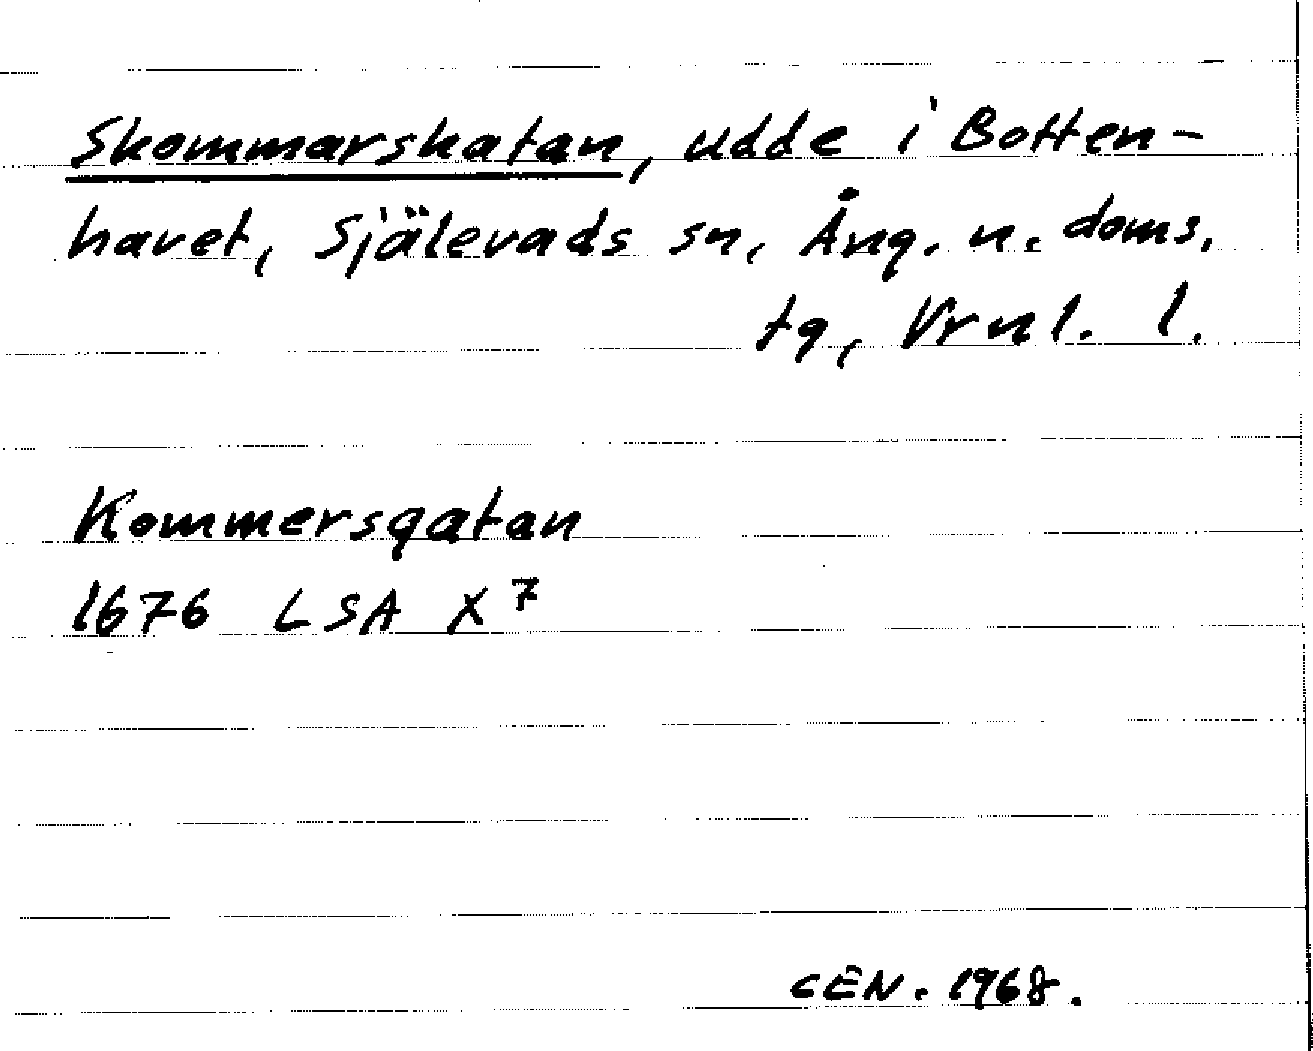 Skommarskatan, udde i Botten-
havet, Själevads sn, Ång. n. doms.
tg, Vrnl. l.
Kommersgatan
1676 LSA X⁷
CEN. 1968.